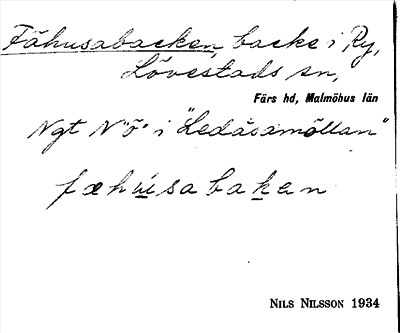 Fähusabacken, backe i Ry,
Lövestads sn,
Färs hd, Malmöhus län
Ngt N "Ö" i "Ledåsamöllan"
fæhúsabaken
NILS NILSSON 1934